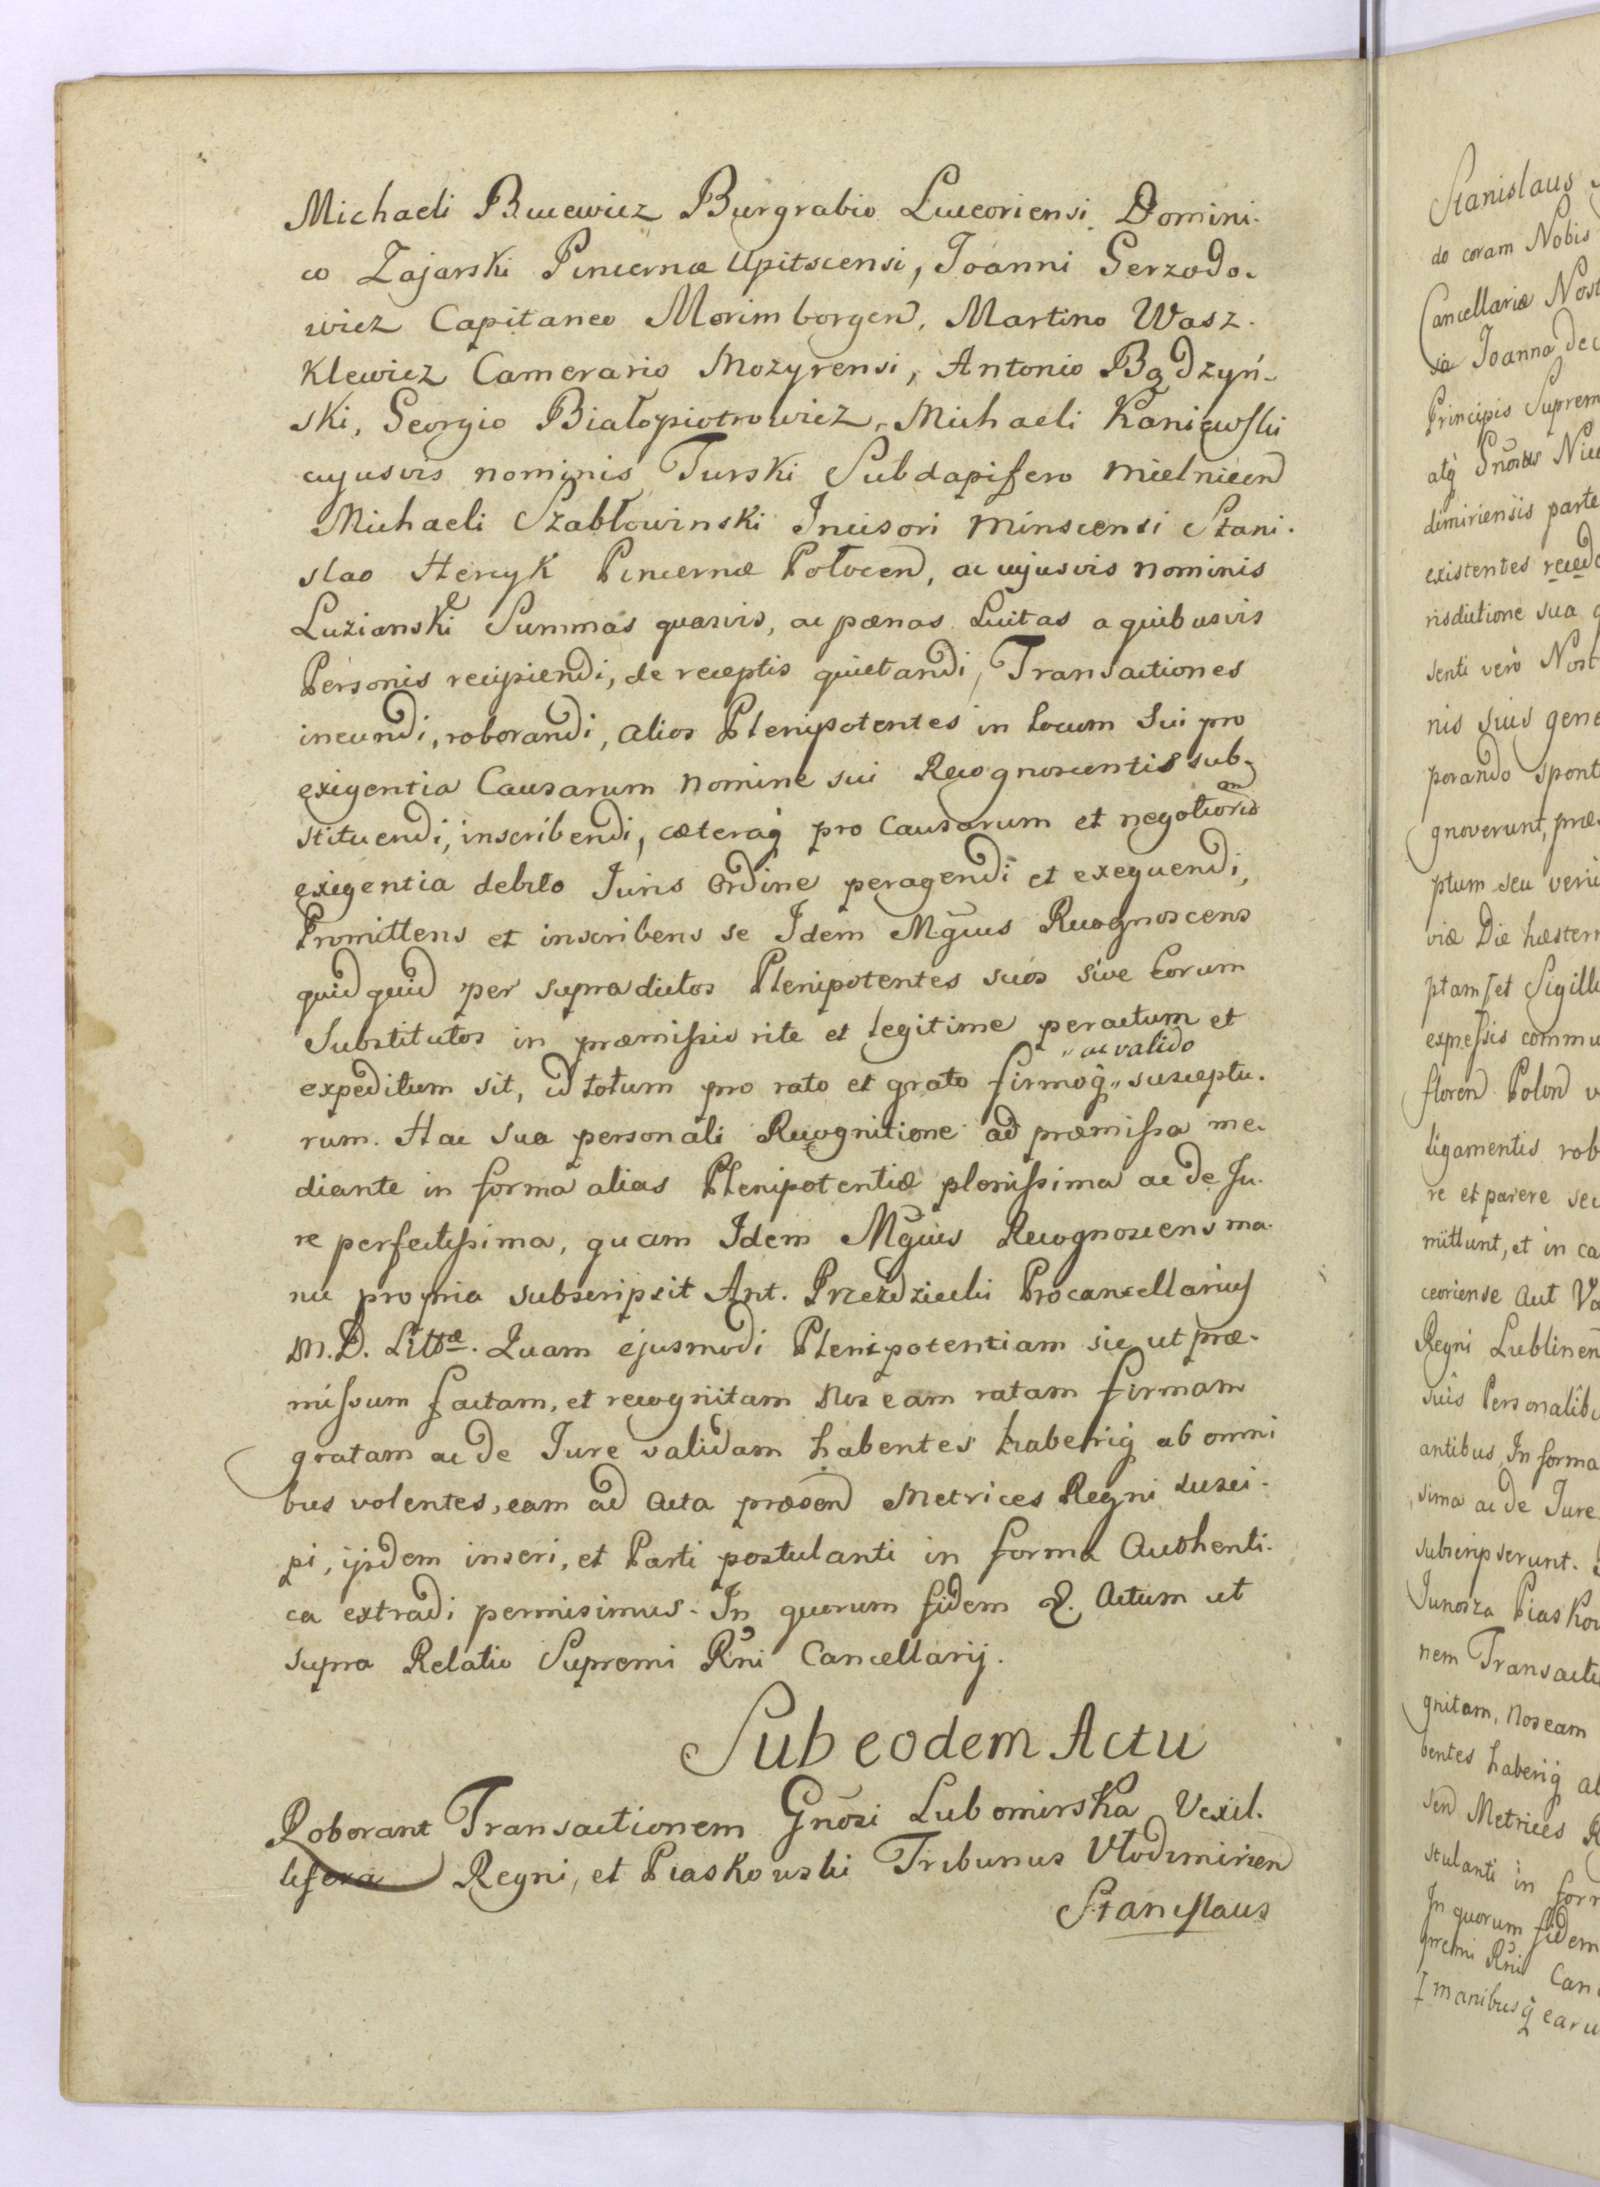 Michaeli Bucewicz Burgrabio Luceoriensi. Domini-
co Zajarski Pincernæ Upitscensi, Joanni Gerzodo-
wicz Capitaneo Morimborgen, Martino Wasz-
Klewicz Camerario Mozyrensi, Antonio Bądzyń-
ski, Georgio Białopiotrowicz, Michaeli Kaniewski
cujusvis nominis Turski Subdapifero Mielnicen
Michaeli Szabłowinski Incisori Minscensi Stani-
slao Hercyk Pincernæ Połocen, ac cujusvis nominis
Luzianski Summas quasvis, ac pœnas Luitas a quibusvis
Personis recipiendi, de receptis quietandi, Transactiones
ineundi, roborandi, alios Plenipotentes in Locum Sui pro
exigentia Causarum nomine sui Recognoscentis sub-
stituendi, inscribendi, cæteraq pro Causarum et negotiorum
exigentia debito Juris Ordine peragendi et exequendi,
Promittens et inscribens se Idem Mgcus Recognoscens
quidquid per supradictos Plenipotentes suos sive Eorum
Substitutos in præmissis rite et legitime peractum et
expeditum sit, id totum pro rato et grato firmoq „ ac valido „ susceptu-
rum. Hac sua personali Recognitione ad præmissa me-
diante in forma alias Plenipotentiæ plenissima ac de Ju-
re perfectissima, quam Idem Mgcus Recognoscens ma-
nu propria subscripsit Ant. Przezdziecki Procancellarius
M. D. Littæ. Quam ejusmodi Plenipotentiam sic ut præ-
missum factam, et recognitam Nos eam ratam firmam
gratam ac de Jure validam habentes haberiq ab omni
bus volentes, eam ad Acta præsen Metrices Regni susci-
pi, ijsdem inseri, et Parti postulanti in forma Authenti-
ca extradi permisimus. In quorum fidem &. Actum ut
supra Relatio Supremi Rni Cancellarij.
Sub eodem Actu
Roborant Transactionem Gnosi Lubomirska Vexil-
lifera Regni, et Piaskowski Tribunus Vłodimirien
Stanislaus
Stanislaus
do coram Nobis
Cancellariæ Nost
Joanna de
Principis Suprem
atq Gnosus
dimiriensis parte
existentes
risdictione sua
senti vero Nost
nis suis gene
porando spont
gnoverunt, præ
ptum seu
viæ Die hæstern
ptam et Sigill
expressis commu
floren Polon
ligamentis rob
re et parere
mittunt, et in ca
ceoriense aut Va
Regni Lublinen
suis Personalib
antibus, In forma
sima ac de Jure
subscripserunt.
Junosza Piaskow
nem Transact
gnitam, Nos eam
bentes haberiq a
sen Metrices R
stulanti in for
In quorum fidem
premi Rni Can
manibusq earu